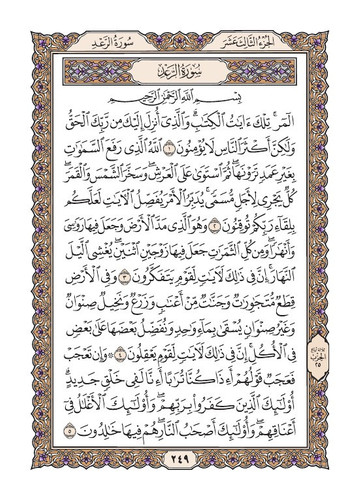 سُورَةُ الرَّعْدِ
الجُزْءُ الثَّالِثَ عَشَرَ
سُورَةُ الرَّعْدِ
بِسْمِ اللَّهِ الرَّحْمَٰنِ الرَّحِيمِ
الٓمٓر ۚ تِلْكَ ءَايَٰتُ ٱلْكِتَٰبِ ۗ وَٱلَّذِىٓ أُنزِلَ إِلَيْكَ مِن رَّبِّكَ ٱلْحَقُّ
وَلَٰكِنَّ أَكْثَرَ ٱلنَّاسِ لَا يُؤْمِنُونَ ١ ٱللَّهُ ٱلَّذِى رَفَعَ ٱلسَّمَٰوَٰتِ
بِغَيْرِ عَمَدٍ تَرَوْنَهَا ۖ ثُمَّ ٱسْتَوَىٰ عَلَى ٱلْعَرْشِ ۖ وَسَخَّرَ ٱلشَّمْسَ وَٱلْقَمَرَ ۖ
كُلٌّ يَجْرِى لِأَجَلٍ مُّسَمًّى ۚ يُدَبِّرُ ٱلْأَمْرَ يُفَصِّلُ ٱلْءَايَٰتِ لَعَلَّكُم
بِلِقَآءِ رَبِّكُمْ تُوقِنُونَ ٢ وَهُوَ ٱلَّذِى مَدَّ ٱلْأَرْضَ وَجَعَلَ فِيهَا رَوَٰسِىَ
وَأَنْهَٰرًا ۖ وَمِن كُلِّ ٱلثَّمَرَٰتِ جَعَلَ فِيهَا زَوْجَيْنِ ٱثْنَيْنِ ۖ يُغْشِى ٱلَّيْلَ
ٱلنَّهَارَ ۚ إِنَّ فِى ذَٰلِكَ لَءَايَٰتٍ لِّقَوْمٍ يَتَفَكَّرُونَ ٣ وَفِى ٱلْأَرْضِ
قِطَعٌ مُّتَجَٰوِرَٰتٌ وَجَنَّٰتٌ مِّنْ أَعْنَٰبٍ وَزَرْعٌ وَنَخِيلٌ صِنْوَانٌ
وَغَيْرُ صِنْوَانٍ يُسْقَىٰ بِمَآءٍ وَٰحِدٍ وَنُفَضِّلُ بَعْضَهَا عَلَىٰ بَعْضٍ
فِى ٱلْأُكُلِ ۚ إِنَّ فِى ذَٰلِكَ لَءَايَٰتٍ لِّقَوْمٍ يَعْقِلُونَ ٤ ۞ وَإِن تَعْجَبْ
فَعَجَبٌ قَوْلُهُمْ أَءِذَا كُنَّا تُرَٰبًا أَءِنَّا لَفِى خَلْقٍ جَدِيدٍ ۗ
أُو۟لَٰٓئِكَ ٱلَّذِينَ كَفَرُوا۟ بِرَبِّهِمْ ۖ وَأُو۟لَٰٓئِكَ ٱلْأَغْلَٰلُ فِىٓ
أَعْنَاقِهِمْ ۖ وَأُو۟لَٰٓئِكَ أَصْحَٰبُ ٱلنَّارِ ۖ هُمْ فِيهَا خَٰلِدُونَ ٥
الحِزْب
٢٥
٢٤٩